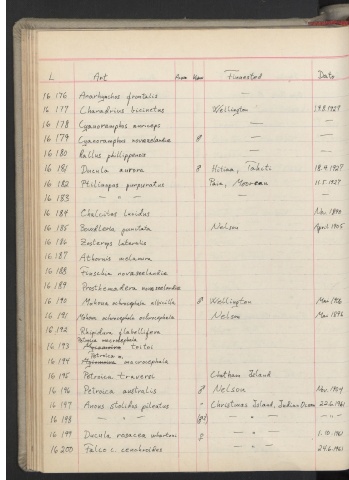 L Art Kjønn Funnested Dato
16 176 Anarhynchus frontalis — —
16 177 Charadrius bicinctus Wellington 19.8.1927
16 178 Cyanoramphus auriceps — —
16 179 Cyanoramphus novaezelandiae ♂ — —
16 180 Rallus philippensis — —
16 181 Ducula aurora ♂ Hitiaa, Tahiti 18.9.1927
16 182 Ptilinopus purpuratus Paia, Moorea 11.5.1927
16 183 — " — — —
16 184 Chalcites lucidus Nov. 1890
16 185 Bowdleria punctata Nelson April 1905
16 186 Zosterops lateralis
16 187 Anthornis melanura
16 188 Prosthemadera novaeseelandiae
16 190 Mohoua ochrocephala albicilla ♂ Wellington Mai 1896
16 191 Mohoua ochrocephala ochrocephala Nelson Mai 1896
16 192 Rhipidura flabellifera
Petroica macrocephala
16 193 toitoi
Petroica m.
16 194 macrocephala
16 195 Petroica traversi Chatham Island
16 196 Petroica australis ♂ Nelson Nov. 1904
16 197 Anous stolidus pileatus " Christmas Island, Indian Ocean 22.6.1961
16 198 — " — — " — — " —
16 199 Ducula rosacea whartoni — " — 1.10.1961
16 200 Falco c. cenchroides — " — 24.6.1961